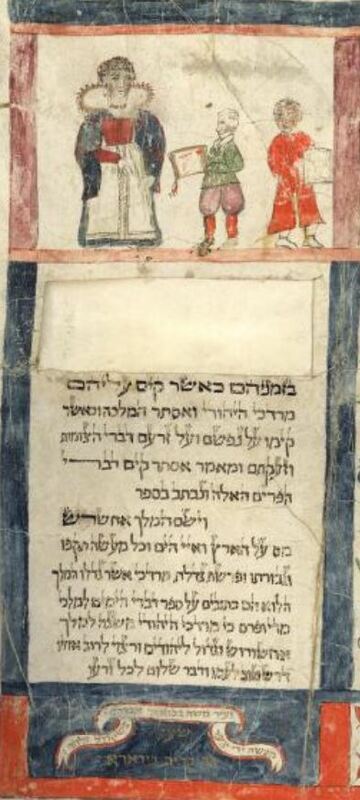 בזמניהם כאשר קים עליהם
מרדכי היהודי ואסתר המלכה וכאשר
קימו על נפשם ועל זרעם דברי הצומות
וזעקתם ומאמר אסתר קים דברי
הפרים האלה ונכתב בספר
וישם המלך אחשרש
מס על הארץ ואיי הים וכל מעשה תקפו
וגבורתו ופרשת גדלת מרדכי אשר גדלו המלך
הלוא הם כתובים על ספר דברי הימים למלכי
מדי ופרס כי מרדכי היהודי משנה למלך
אחשורוש וגדול ליהודים ורצוי לרוב אחיו
דרש טוב לעמו ודבר שלום לכל זרעו